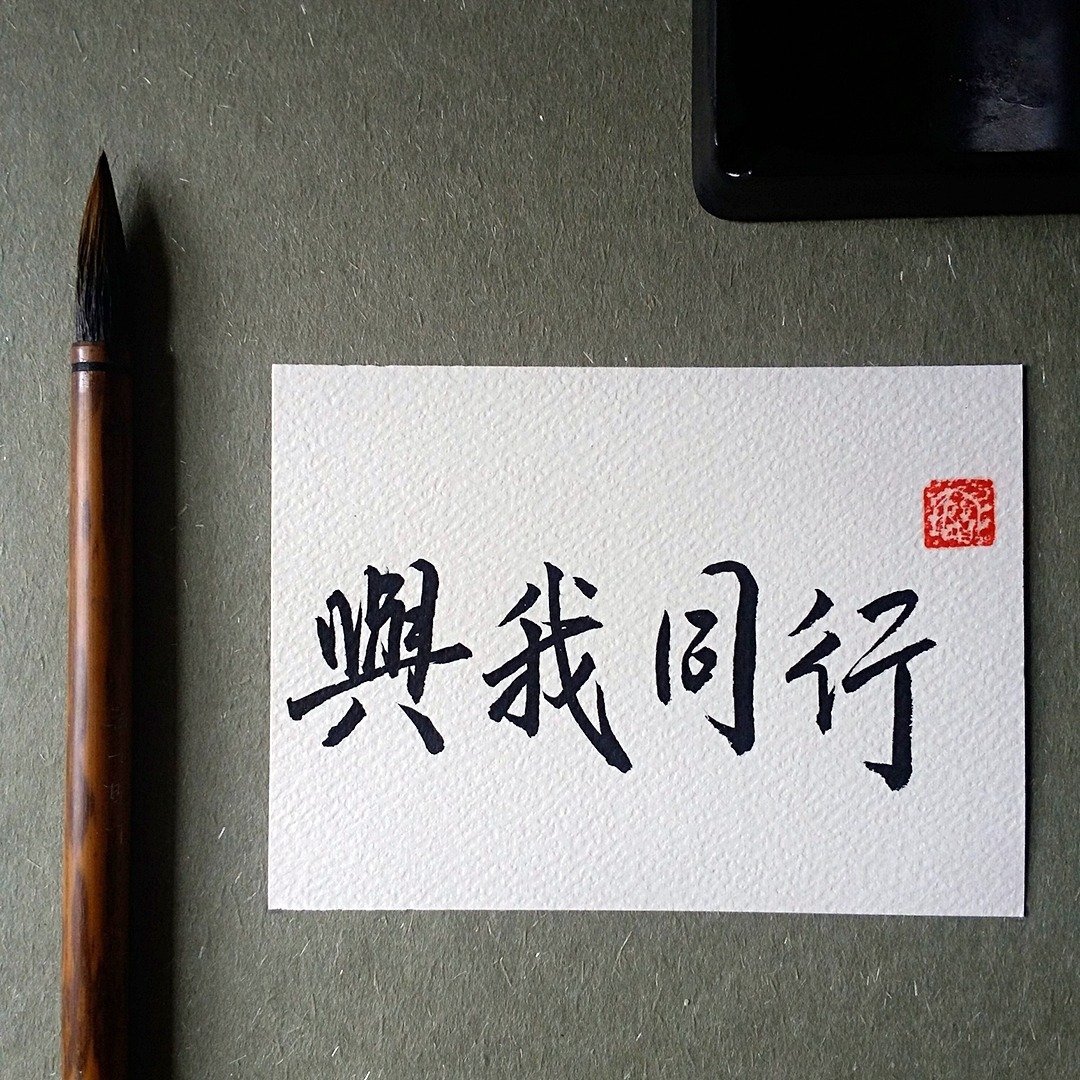 與我同行